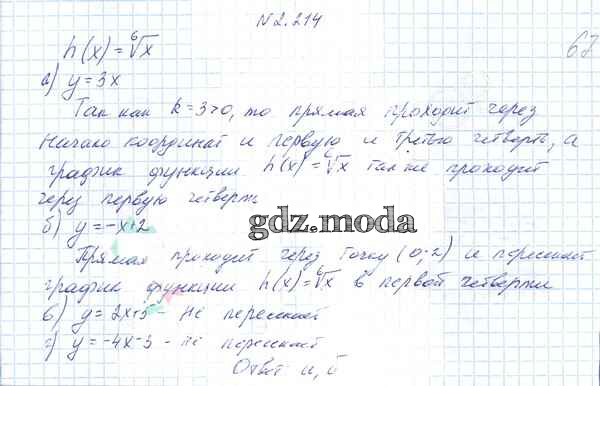 N 2.214
h(x) = ⁶√x
67
а) y = 3x
Так как k = 3 > 0, то прямая проходит через
начало координат и первую и третью четверть, а
график функции h(x) = ⁶√x также проходит
через первую четверть
б) y = -x+2
gdz.moda
Прямая проходит через точку (0;-2) и пересекает
график функции h(x) = ⁶√x в первой четверти
в) y = 2x+5 - не пересекает
г) y = -4x-3 - не пересекает
Ответ: а, б